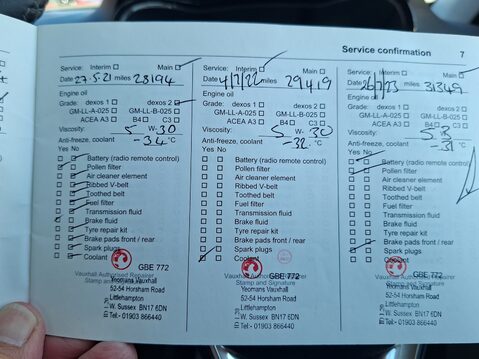 Service confirmation 7
Service: Interim Main
Date 27.5.21 miles 28194
Engine oil
Grade: dexos 1 dexos 2
GM-LL-A-025 GM-LL-B-025
ACEA A3 B4 C3
Viscosity: 5 W-30
Anti-freeze, coolant -34 °C
Yes No
Battery (radio remote control)
Pollen filter
Air cleaner element
Ribbed V-belt
Toothed belt
Fuel filter
Transmission fluid
Brake fluid
Tyre repair kit
Brake pads front / rear
Spark plugs
Coolant
GBE 772
Vauxhall Authorised Repairer
Stamp and Signature
Yeomans Vauxhall
52-54 Horsham Road
Littlehampton
W. Sussex BN17 6DN
Tel:- 01903 866440
Service: Interim Main
Date 4/7/22 miles 29419
Engine oil
Grade: dexos 1 dexos 2
GM-LL-A-025 GM-LL-B-025
ACEA A3 B4 C3
Viscosity: 5 W-30
Anti-freeze, coolant -32 °C
Yes No
Battery (radio remote control)
Pollen filter
Air cleaner element
Ribbed V-belt
Toothed belt
Fuel filter
Transmission fluid
Brake fluid
Tyre repair kit
Brake pads front / rear
Spark plugs
Coolant
GBE 772
Vauxhall Authorised Repairer
Stamp and Signature
Yeomans Vauxhall
52-54 Horsham Road
Littlehampton
W. Sussex BN17 6DN
Tel:- 01903 866440
Service: Interim Main
Date 26/7/23 miles 31349
Engine oil
Grade: dexos 1 dexos 2
GM-LL-A-025 GM-LL-B-025
ACEA A3 B4 C3
Viscosity:
Anti-freeze, coolant -31 °C
Yes No
Battery (radio remote control)
Pollen filter
Air cleaner element
Ribbed V-belt
Toothed belt
Fuel filter
Transmission fluid
Brake fluid
Tyre repair kit
Brake pads front / rear
Spark plugs
Coolant
GBE 772
Vauxhall Authorised Repairer
Stamp and Signature
Yeomans Vauxhall
52-54 Horsham Road
Littlehampton
W. Sussex BN17 6DN
Tel:- 01903 866440